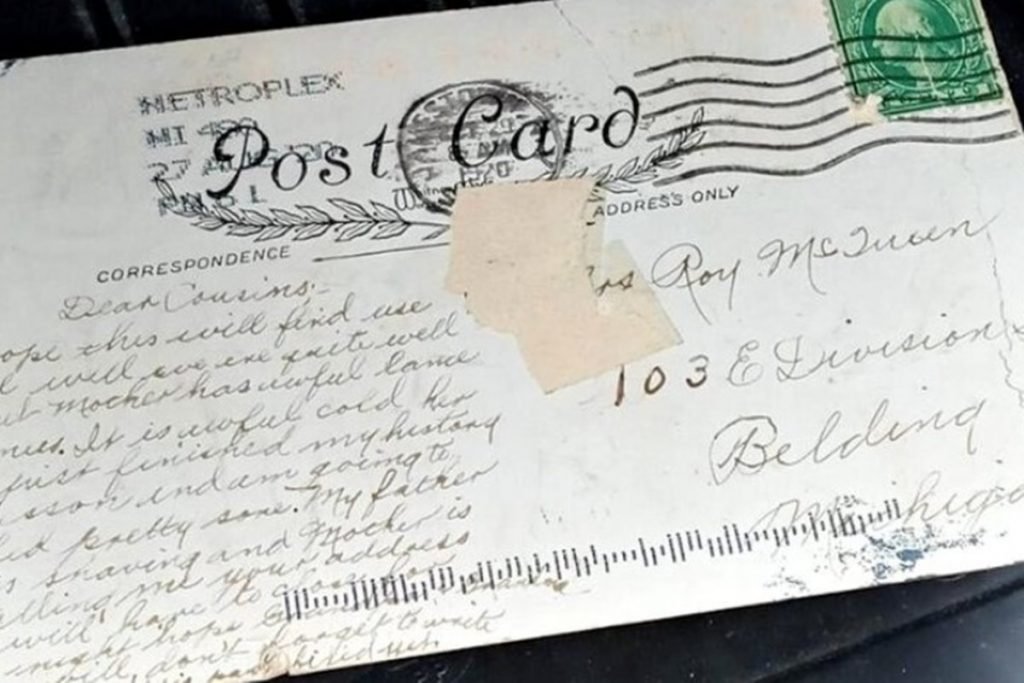 METROPLEX
MI 480
27 AUG '20
PM 5 L
Post Card
1920
CORRESPONDENCE
ADDRESS ONLY
Dear Cousins;-
ope this will find use
l well we are quite well
ut Mother has awful lame
. It is awful cold her
just finished my history
sson and am going to
bed pretty soon. My father
is shaving and Mother is
lling me your address
will have to close for
night hope
will don't forget to write
us
rs Roy McQueen
103 E Division
Belding
Michiga